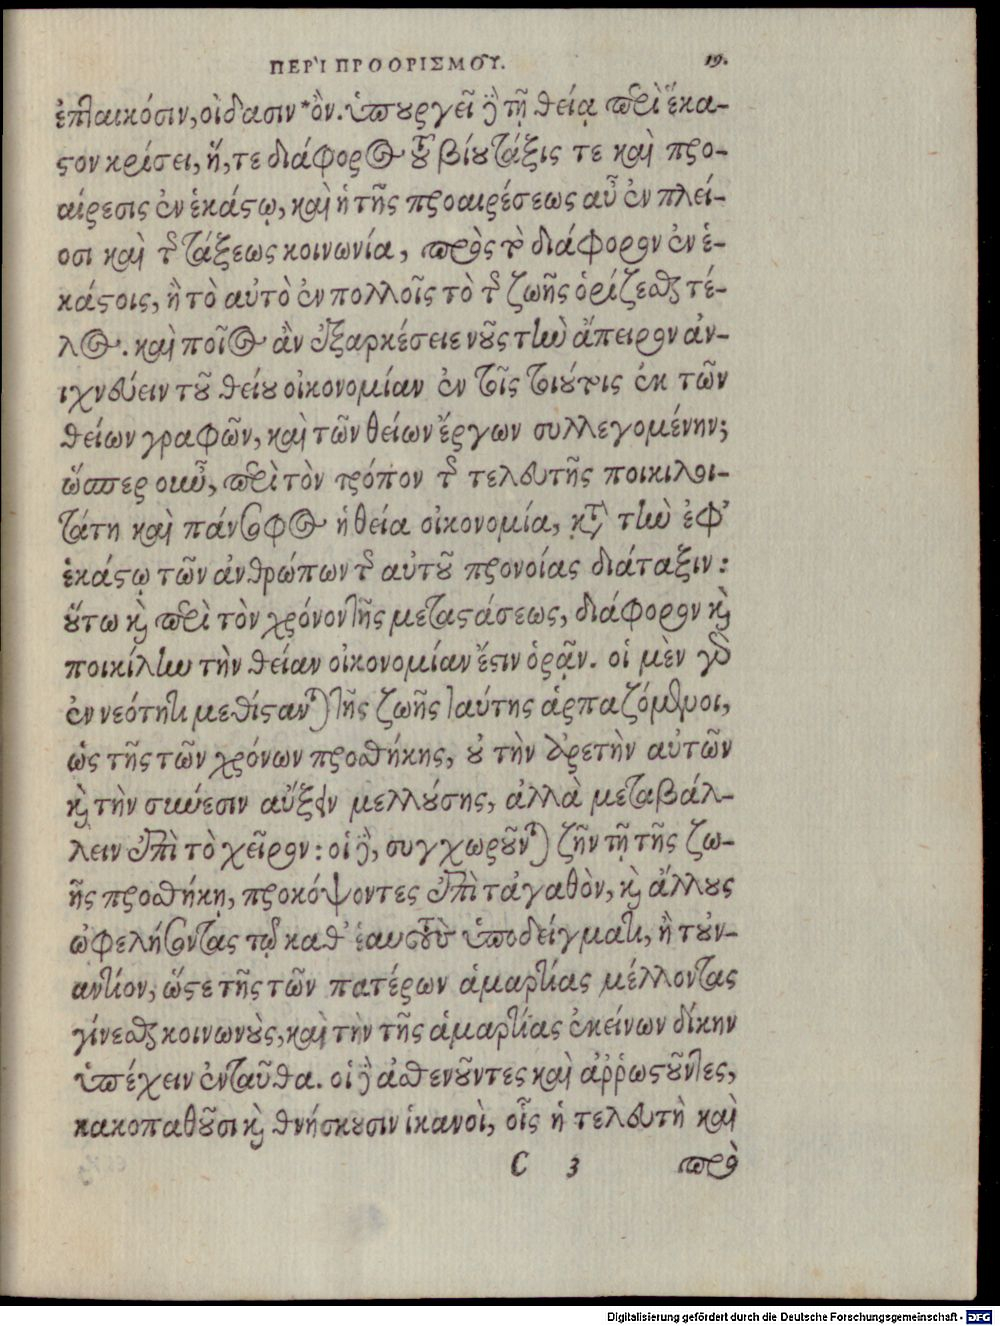 ΠΕΡῚ ΠΡΟΟΡΙΣΜΟΥ͂. 19.
ἐπταικόσιν, οἴδασιν *ὃν. ὑπουργεῖ ἢ τῇ θείᾳ περὶ ἕκα-
στον κρίσει, ἥ, τε διάφορος τοῦ βίου τάξις τε καὶ προ-
αίρεσις ἐν ἑκάστῳ, καὶ ἡ τῆς προαιρέσεως αὖ ἐν πλεί-
οσι καὶ τῆς τάξεως κοινωνία, πρὸς τὸ διάφορον ἐν ἑ-
κάστοις, ἢ τὸ αὐτὸ ἐν πολλοῖς τὸ τῆς ζωῆς ὁρίζεσθαι τέ-
λος. καὶ ποῖος ἂν ἐξαρκέσειε νοῦς τὴν ἄπειρον ἀν-
ιχνεύειν τοῦ θείου οἰκονομίαν ἐν τοῖς τοιούτοις ἐκ τῶν
θείων γραφῶν, καὶ τῶν θείων ἔργων συλλεγομένην;
ὥσπερ οὖν, περὶ τὸν τρόπον τῆς τελευτῆς ποικιλοι-
τάτη καὶ πάνσοφος ἡ θεία οἰκονομία, κατὰ τὴν ἐφ'
ἑκάστῳ τῶν ἀνθρώπων τῆς αὐτοῦ προνοίας διάταξιν:
οὕτω καὶ περὶ τὸν χρόνον τῆς μεταστάσεως, διάφορον καὶ
ποικίλην τὴν θείαν οἰκονομίαν ἔστιν ὁρᾷν. οἱ μὲν γὰρ
ἐν νεότητι μεθίστανται τῆς ζωῆς ταύτης ἁρπαζόμενοι,
ὡς τῆς τῶν χρόνων προσθήκης, οὐ τὴν ἀρετὴν αὐτῶν
καὶ τὴν σύνεσιν αὔξειν μελλούσης, ἀλλὰ μεταβάλ-
λειν ἐπὶ τὸ χεῖρον: οἱ δὲ, συγχωροῦνται ζῆν τῇ τῆς ζω-
ῆς προσθήκῃ, προκόψοντες ἐπὶ τἀγαθὸν, καὶ ἄλλους
ὠφελήσοντας τῷ καθ' ἑαυτοὺς ὑποδείγματι, ἢ τοὐν-
αντίον, ὥστε τῆς τῶν πατέρων ἁμαρτίας μέλλοντας
γίνεσθαι κοινωνοὺς, καὶ τὴν τῆς ἁμαρτίας ἐκείνων δίκην
ὑπέχειν ἐνταῦθα. οἱ δὲ ἀσθενοῦντες καὶ ἀῤῥωστοῦντες,
κακοπαθοῦσι καὶ θνήσκουσιν ἱκανοὶ, οἷς ἡ τελευτὴ καὶ
C 3 πρὸ
Digitalisierung gefördert durch die Deutsche Forschungsgemeinschaft - DFG